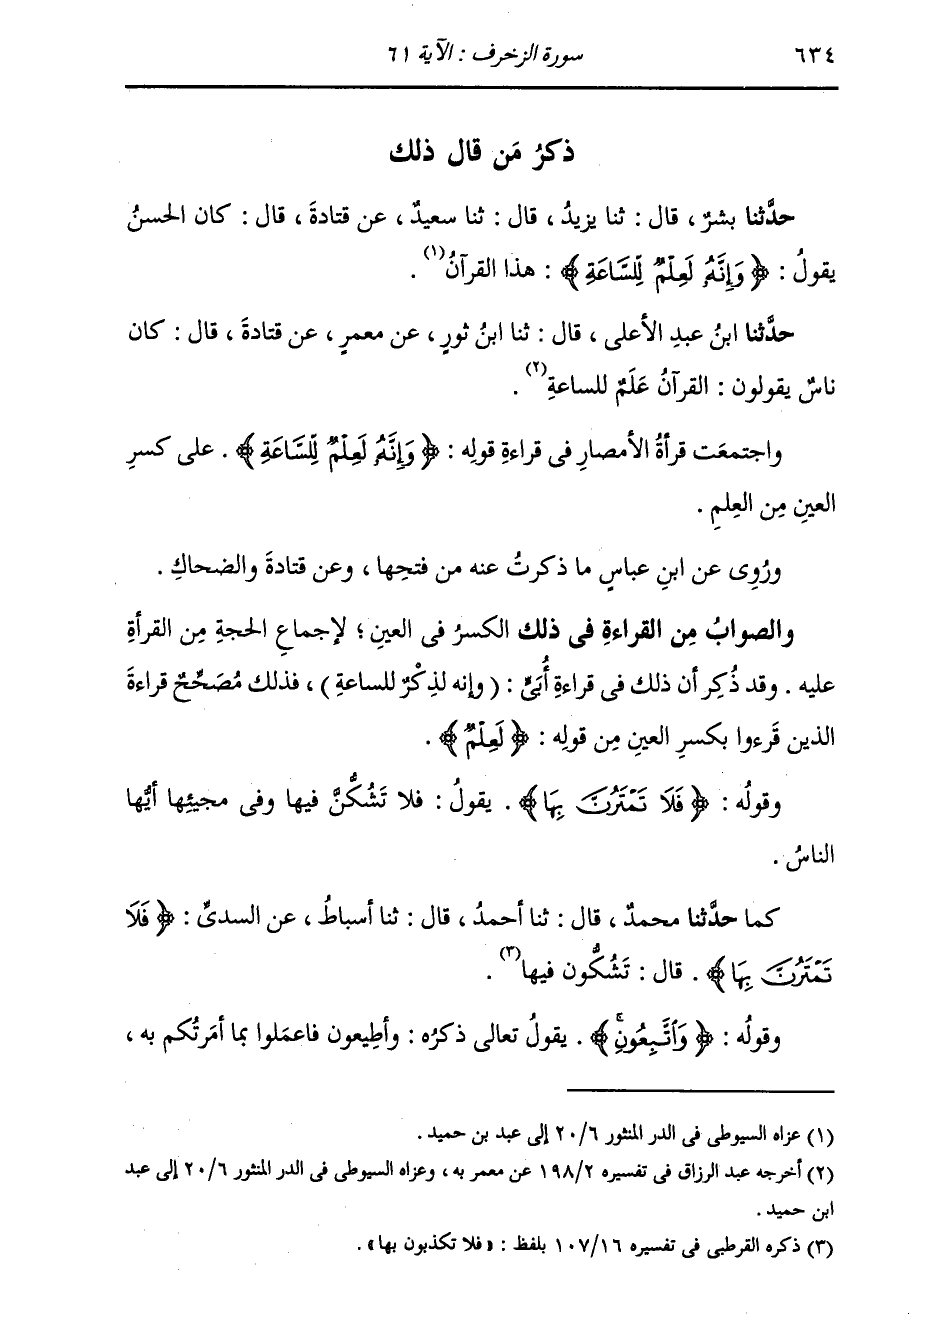 ٦٣٤
سورة الزخرف : الآية ٦١
ذكرُ مَن قال ذلك
حدَّثنا بشرٌ ، قال : ثنا يزيدُ ، قال : ثنا سعيدٌ ، عن قتادةَ ، قال : كان الحسنُ
يقولُ : ﴿ وَإِنَّهُ لَعِلْمٌ لِّلسَّاعَةِ ﴾ : هذا القرآنُ(١) .
حدَّثنا ابنُ عبدِ الأعلى ، قال : ثنا ابنُ ثورٍ ، عن معمرٍ ، عن قتادةَ ، قال : كان
ناسٌ يقولون : القرآنُ عَلَمٌ للساعةِ(٢) .
واجتمعَت قرأةُ الأمصارِ فى قراءةِ قولِه : ﴿ وَإِنَّهُ لَعِلْمٌ لِّلسَّاعَةِ ﴾ . على كسرِ
العينِ مِن العِلمِ .
ورُوِى عن ابنِ عباسٍ ما ذكرتُ عنه من فتحِها ، وعن قتادةَ والضحاكِ .
والصوابُ مِن القراءةِ فى ذلك الكسرُ فى العينِ ؛ لإجماعِ الحجةِ مِن القرأةِ
عليه . وقد ذُكِر أن ذلك فى قراءةِ أُبَىٍّ : ( وإنه لذِكْرٌ للساعةِ ) ، فذلك مُصَحِّحٌ قراءةَ
الذين قَرءوا بكسرِ العينِ مِن قولِه : ﴿ لَعِلْمٌ ﴾ .
وقولُه : ﴿ فَلَا تَمْتَرُنَّ بِهَا ﴾ . يقولُ : فلا تَشُكُّنَّ فيها وفى مجيئِها أيُّها
الناسُ .
كما حدَّثنا محمدٌ ، قال : ثنا أحمدُ ، قال : ثنا أسباطُ ، عن السدىِّ : ﴿ فَلَا
تَمْتَرُنَّ بِهَا ﴾ . قال : تَشُكُّون فيها(٣) .
وقولُه : ﴿ وَاتَّبِعُونِۚ ﴾ . يقولُ تعالى ذكرُه : وأطِيعون فاعمَلوا بما أمَرتُكم به ،
(١) عزاه السيوطى فى الدر المنثور ٢٠/٦ إلى عبد بن حميد .
(٢) أخرجه عبد الرزاق فى تفسيره ١٩٨/٢ عن معمر به ، وعزاه السيوطى فى الدر المنثور ٢٠/٦ إلى عبد
ابن حميد .
(٣) ذكره القرطبى فى تفسيره ١٠٧/١٦ بلفظ : « فلا تكذبون بها » .